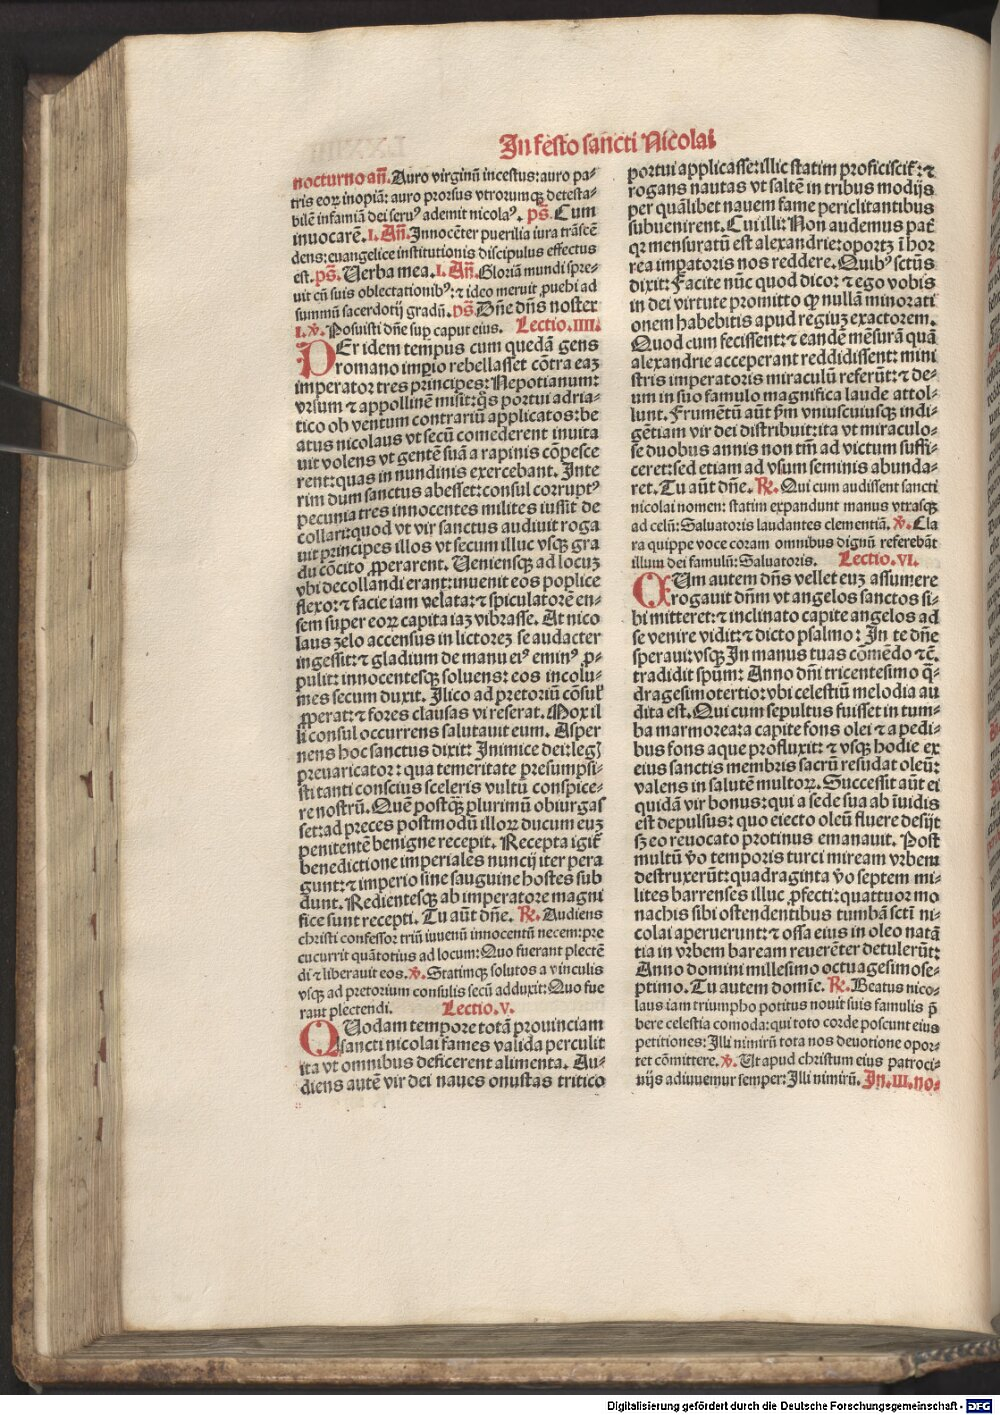 In festo sancti Nicolai
nocturno añ. Auro virginũ incestus: auro pa-
tris eorꝝ inopiã: auro prorsus vtrorumqꝫ detesta-
bilẽ infamiã dei seruꝰ ademit nicolaꝰ. ps̃. Cum
inuocarẽ. I. Añ. Innocẽter puerilia iura trãscẽ
dens: euangelice institutionis discipulus effectus
est. ps̃. Uerba mea. I. Añ. Gloriã mundi spre-
uit cũ suis oblectationibꝰ: ⁊ ideo meruit ꝓuehi ad
summũ sacerdotij gradũ. ps̃. Dñe dñs noster
I. ℣. Posuisti dñe suꝑ caput eius. Lectio. IIII.
PEr idem tempus cum quedã gens
romano imꝑio rebellasset cõtra eaꝫ
imperator tres principes: Nepotianum:
vrsum ⁊ appollinẽ misit: q̃s portui adria-
tico ob ventum contrariũ applicatos: be
atus nicolaus vt secũ comederent inuita
uit volens vt gentẽ suã a rapinis cõpesce
rent: quas in nundinis exercebant. Inte
rim dum sanctus abesset: consul corruptꝰ
pecunia tres innocentes milites iussit de
collari: quod vt vir sanctus audiuit roga
uit principes illos vt secum illuc vsqꝫ gra
du cõcito ꝓperarent. Ueniensqꝫ ad locuꝫ
vbi decollandi erant: inuenit eos poplice
flexo: ⁊ facie iam velata: ⁊ spiculatorẽ en-
sem super eorꝝ capita iaꝫ vibrasse. At nico
laus zelo accensus in lictoreꝫ se audacter
ingessit: ⁊ gladium de manu eiꝰ eminꝰ ꝓ-
pulit: innocentesqꝫ soluens: eos incolu-
mes secum duxit. Ilico ad pretoriũ cõsul̕
ꝓperat: ⁊ fores clausas vi reserat. Mox il
li consul occurrens salutauit eum. Asper
nens hoc sanctus dixit: Inimice dei: legꝭ
preuaricator: qua temeritate presumpsi-
sti tanti conscius sceleris vultũ conspice-
re nostrũ. Quẽ postqꝫ̃ plurimũ obiurgas
set: ad preces postmodũ illorꝝ ducum euꝫ
penitentẽ benigne recepit. Recepta igit̃
benedictione imperiales nuncij iter pera
gunt: ⁊ imperio sine sanguine hostes sub
dunt. Redientesqꝫ ab imperatore magni
fice sunt recepti. Tu aũt dñe. ℟. Audiens
christi confessor triũ iuuenũ innocentũ necem: pre
cucurrit quãtotius ad locum: Quo fuerant plectẽ
di ⁊ liberauit eos. ℣. Statimqꝫ solutos a vinculis
vsqꝫ ad pretorium consulis secũ adduxit: Quo fue
rant plectendi. Lectio. V.
QUodam tempore totã prouinciam
sancti nicolai fames valida perculit
ita vt omnibus deficerent alimenta. Au-
diens autẽ vir dei naues onustas tritico
portui applicasse: illic statim proficiscit̃: ⁊
rogans nautas vt saltẽ in tribus modijs
per quãlibet nauem fame periclitantibus
subuenirent. Cui illi: Non audemus pat̃
qꝛ mensuratũ est alexandrie: oportꝫ ĩ hor
rea imꝑatoris nos reddere. Quibꝰ sctũs
dixit: Facite nũc quod dico: ⁊ ego vobis
in dei virtute promitto qꝫ nullã minorati
onem habebitis apud regiuꝫ exactorem.
Quod cum fecissent: ⁊ eandẽ mẽsurã quã
alexandrie acceperant reddidissent: mini
stris imperatoris miraculũ referũt: ⁊ de-
um in suo famulo magnifica laude attol-
lunt. Frumẽtũ aũt ꝑm vniuscuiusqꝫ indi-
gẽtiam vir dei distribuit: ita vt miraculo-
se duobus annis non tm̃ ad victum suffi-
ceret: sed etiam ad vsum seminis abunda-
ret. Tu aũt dñe. ℟. Qui cum audissent sancti
nicolai nomen: statim expandunt manus vtrasqꝫ
ad celũ: Saluatoris laudantes clementiã. ℣. Cla
ra quippe voce coram omnibus dignũ referebãt
illum dei famulũ: Saluatoris. Lectio. VI.
CUm autem dñs vellet euꝫ assumere
rogauit dñm vt angelos sanctos si-
bi mitteret: ⁊ inclinato capite angelos ad
se venire vidit: ⁊ dicto psalmo: In te dñe
speraui: vsqꝫ In manus tuas cõmẽdo ⁊c̃.
tradidit spũm: Anno dñi tricentesimo q̃-
dragesimotertio: vbi celestiũ melodia au
dita est. Qui cum sepultus fuisset in tum-
ba marmorea: a capite fons olei ⁊ a pedi-
bus fons aque profluxit: ⁊ vsqꝫ hodie ex
eius sanctis membris sacrũ resudat oleũ:
valens in salutẽ multorꝝ. Successit aũt ei
quidã vir bonus: qui a sede sua ab ĩuidis
est depulsus: quo eiecto oleũ fluere desijt
sꝫ eo reuocato protinus emanauit. Post
multũ ṽo temporis turci miream vrbem
destruxerũt: quadraginta ṽo septem mi-
lites barrenses illuc ꝓfecti: quattuor mo
nachis sibi ostendentibus tumbã sctĩ ni-
colai aperuerunt: ⁊ ossa eius in oleo natã
tia in vrbem baream reuerẽter detulerũt:
Anno domini millesimo octuagesimose-
ptimo. Tu autem domĩe. ℟. Beatus nico-
laus iam triumpho potitus nouit suis famulis p̃
bere celestia comoda: qui toto corde poscunt eius
petitiones: Illi nimirũ tota nos deuotione opor-
tet cõmittere. ℣. Ut apud christum eius patroci-
nijs adiuuemur semper: Illi nimirũ. In. III. no-
Digitalisierung gefördert durch die Deutsche Forschungsgemeinschaft - DFG